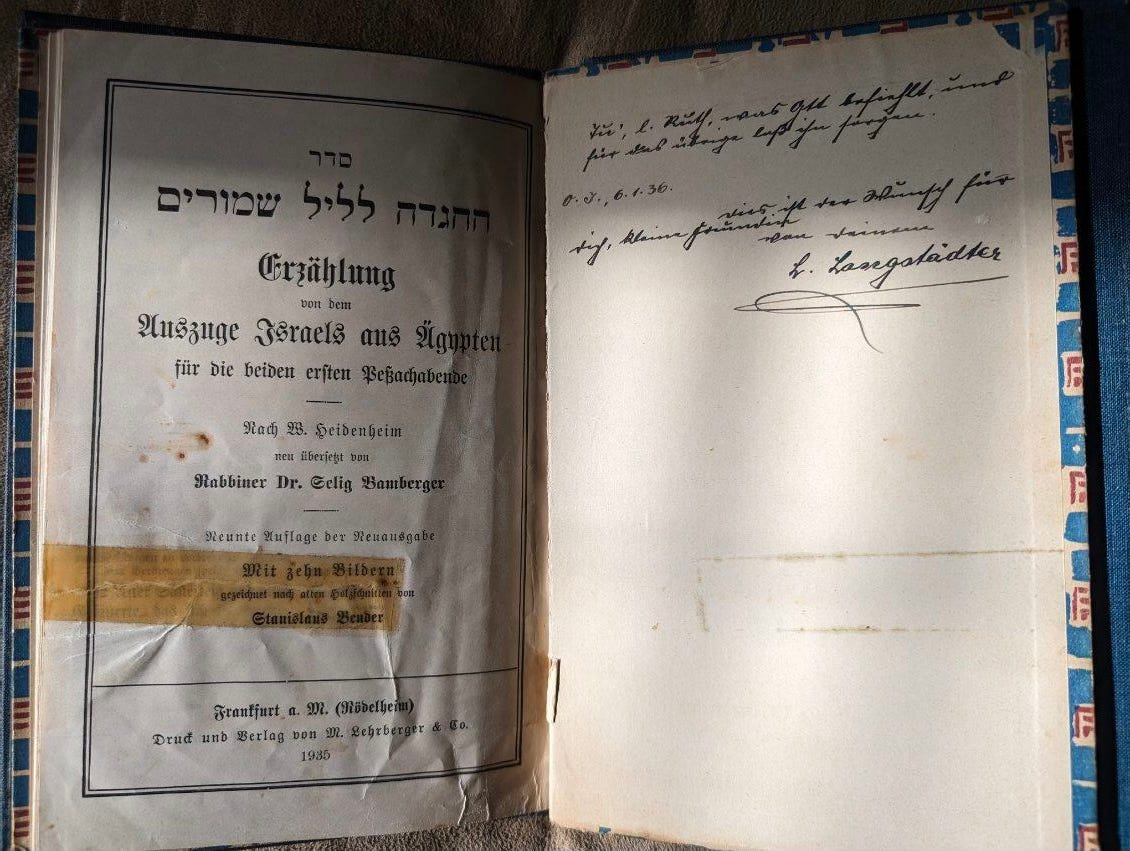 סדר
ההגדה לליל שמורים
Erzählung
von dem
Auszuge Israels aus Ägypten
für die beiden ersten Peßachabende
Nach W. Heidenheim
neu übersetzt von
Rabbiner Dr. Selig Bamberger
Neunte Auflage der Neuausgabe
Mit zehn Bildern
gezeichnet nach alten Holzschnitten von
Stanislaus Bender
Frankfurt a. M. (Rödelheim)
Druck und Verlag von M. Lehrberger & Co.
1935
Tu', l. Ruth, was Gtt befiehlt, und
für das übrige laß ihn sorgen.
O. J., 6.1.36.
dies ist der Wunsch für
dich, kleine Freundin
von deinem
L. Langstädter